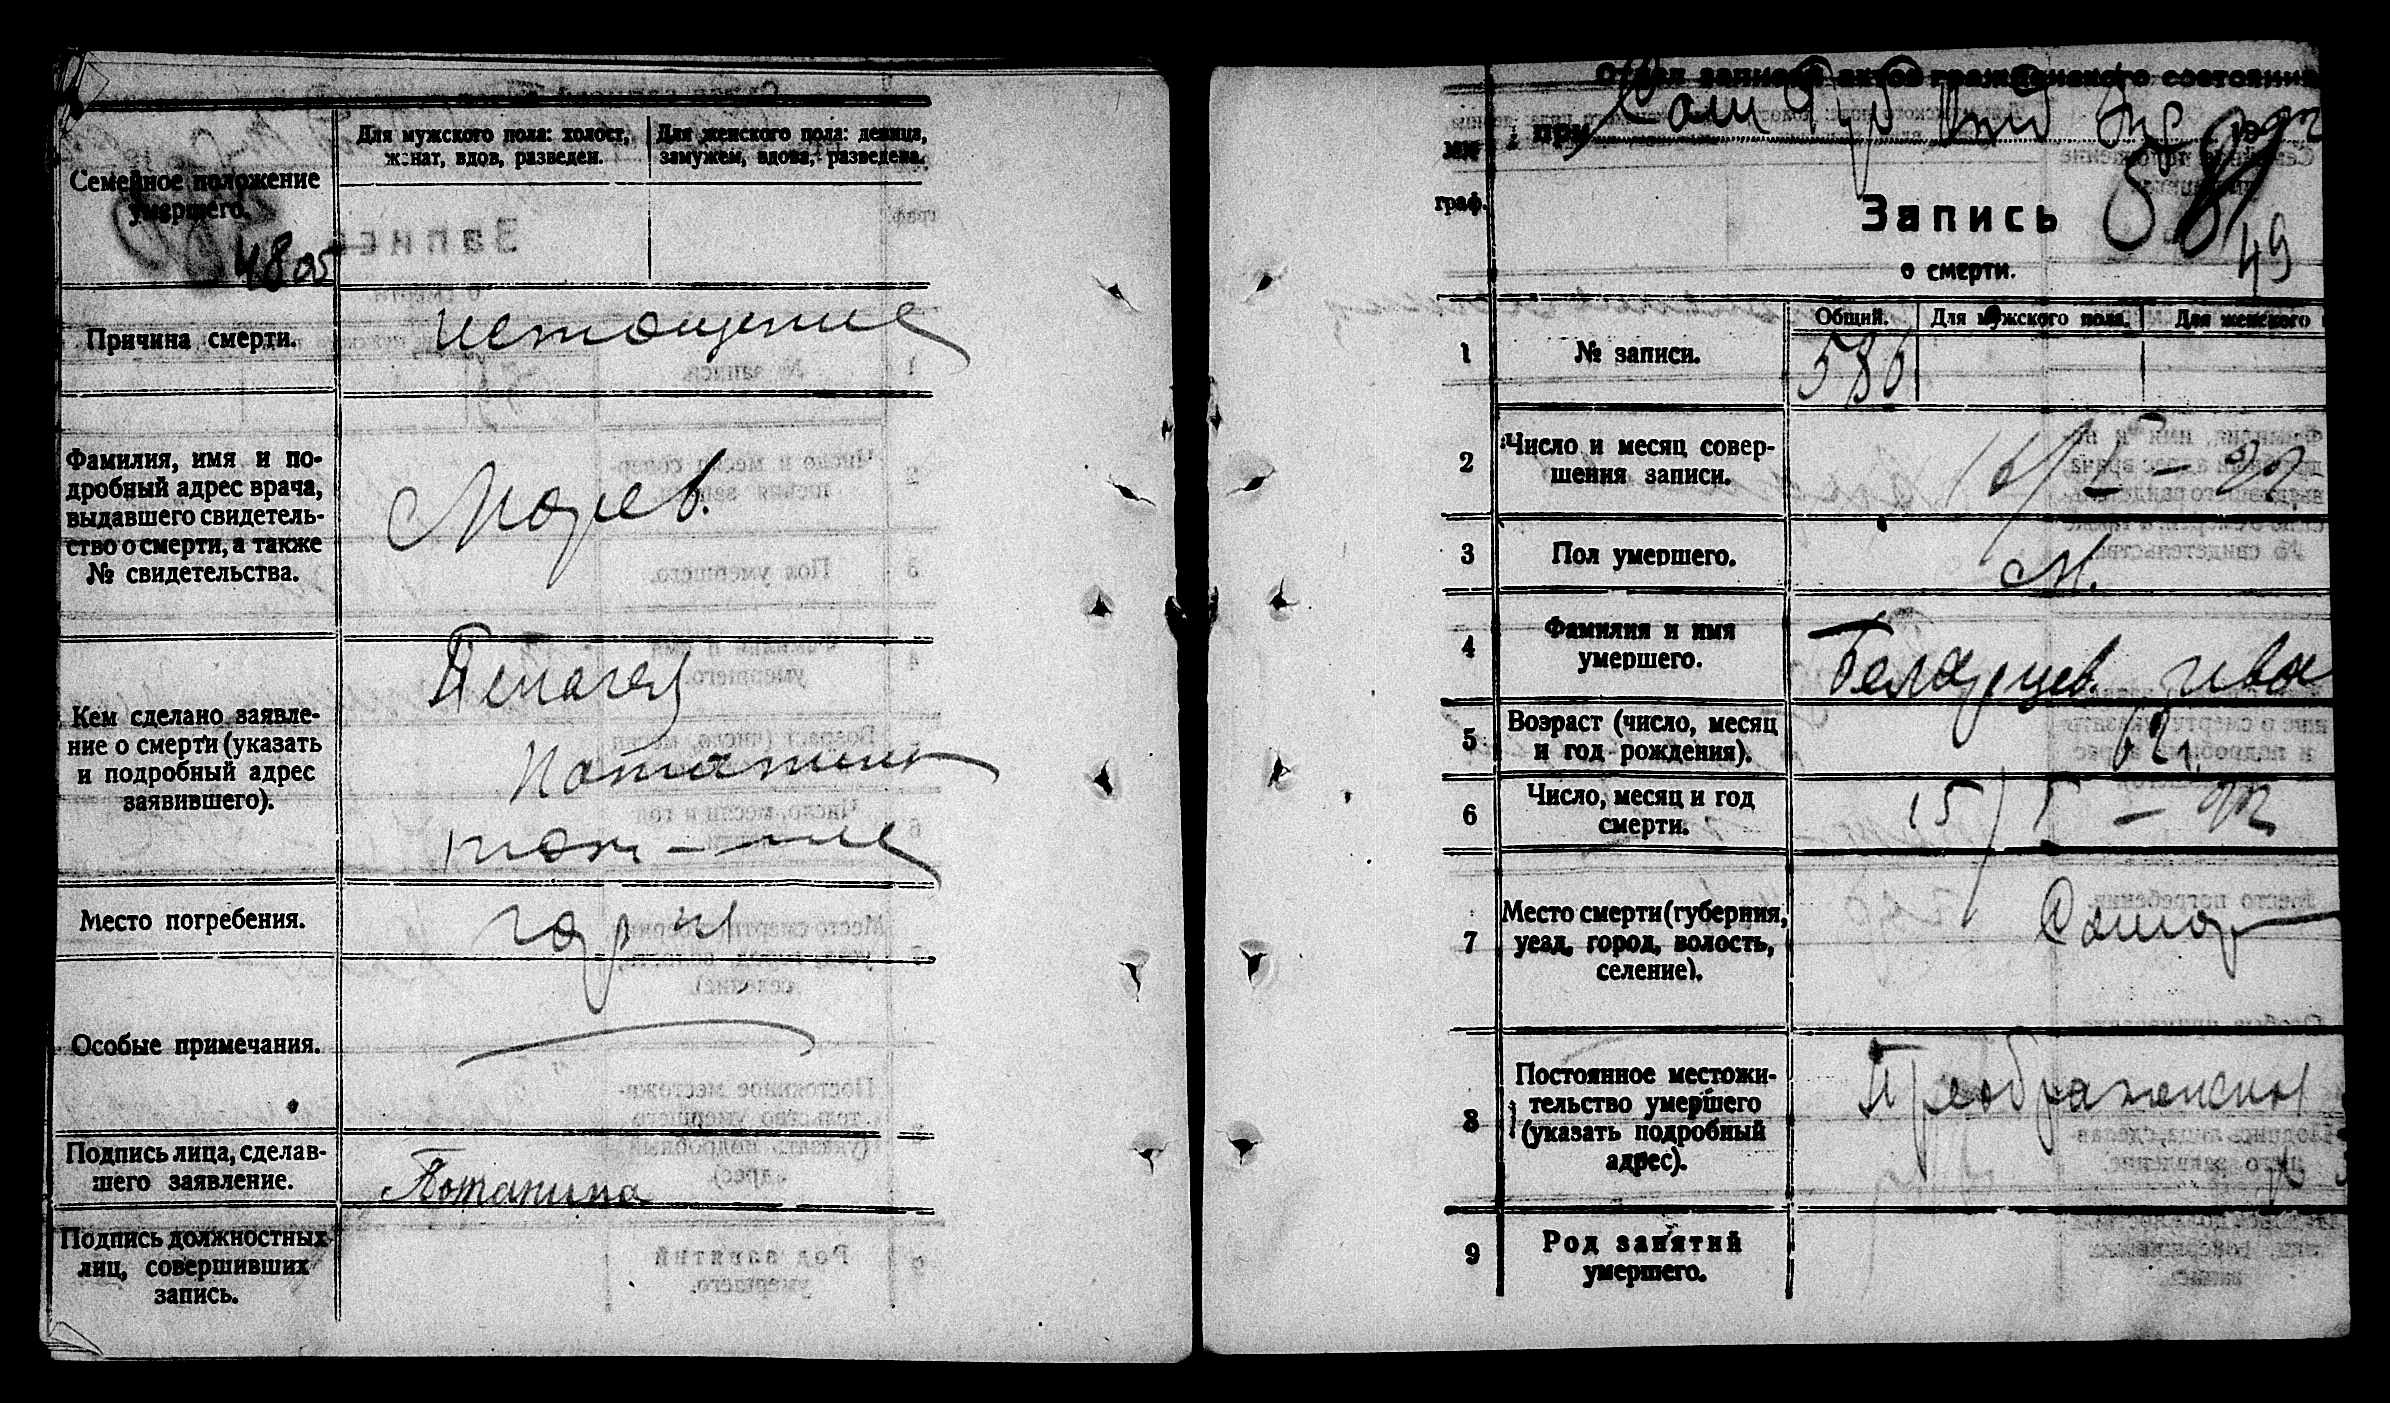 Семейное положение
умершего.
Для мужского пола: холост,
женат, вдов, разведен.
Для женского пола: девица,
замужем, вдова, разведена.
48 05
Причина смерти.
истощение
Фамилия, имя и по-
дробный адрес врача,
выдавшего свидетель-
ство о смерти, а также
№ свидетельства.
Кем сделано заявле-
ние о смерти (указать
и подробный адрес
заявившего).
Пелагея
Потапина
Место погребения.
гор
Особые примечания.
Подпись лица, сделав-
шего заявление.
Потапина
Подпись должностных
лиц, совершивших
запись.
Отдел записей актов гражданского состояния
при Сам Губ
граф.
Запись
49
о смерти.
Общий.
Для мужского пола.
Для женского
1
№ записи.
586
2
Число и месяц совер-
шения записи.
3
Пол умершего.
М.
4
Фамилия и имя
умершего.
Ива
5
Возраст (число, месяц
и год рождения).
6
Число, месяц и год
смерти.
15/I – 22
7
Место смерти (губерния,
уезд, город, волость,
селение).
Самар
8
Постоянное местожи-
тельство умершего
(указать подробный
адрес).
Преображенск
9
Род занятий
умершего.